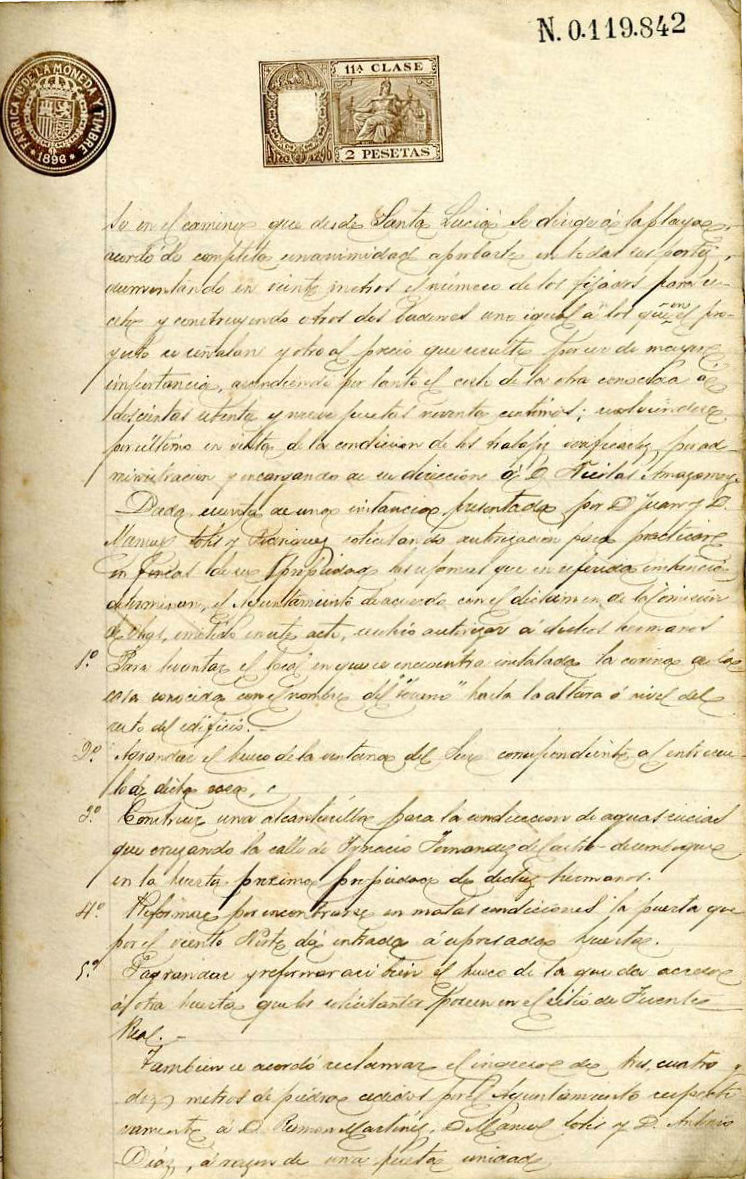 N. 0.119.842
FABRICA Nal. DE LA MONEDA Y TIMBRE
* 1896 *
11ª CLASE
2 PESETAS
se en el camino que desde Santa Lucia se dirige á la playa,
acordó de completa unanimidad aprobarte en todas sus partes,
aumentando en veinte metros el número de los fijados para
y construyendo otros dos badenes uno igual á los que en el pro-
yecto se señalan y otro al precio que resulte por ser de mayor
importancia, ascendiendo por tanto el coste de la obra conocida á
doscientas setenta y nueve pesetas noventa centimos; resolviendose
por ultimo en vista de la condicion de los trabajos verificarlos por ad-
ministracion y encargando de su direccion á D. Nicolas
Dada cuenta de una instancia presentada por D. Juan y D.
Manuel Sotés y Rodriguez solicitando autorizacion para practicar
en fincas de su propiedad las reformas que en referida instancia
determinan, el Ayuntamiento de acuerdo con el dictamen de la Comision
de emitido en este acto, autorizar á dichos hermanos
1º Para levantar el local en que se encuentra instalada la cocina de la
casa conocida con el nombre del hasta la altura ó nivel del
resto del edificio.-
2º Agrandar el hueco de la ventana del Sur correspondiente al entresue-
lo de dicha casa,
3º Construir una alcantarilla para la conduccion de aguas sucias
que cruzando la calle de Ignacio Fernandez de Castro desemboque
en la huerta proxima propiedad de dichos hermanos.
4º Reformar por encontrarse en malas condiciones la puerta que
por el viento Norte dá entrada á expresada huerta.
5º agrandar y reformar asi bien el hueco de la que da acceso
á otra huerta que los solicitantes poseen en el sitio de Fuente
Real.-
Tambien se acordó reclamar el ingreso de tres, cuatro y
diez metros de piedra cedidos por el Ayuntamiento respecti-
vamente á D. Ramon Martinez, D. Manuel Sotés y D. Antonio
Díaz, á razon de una peseta unidad